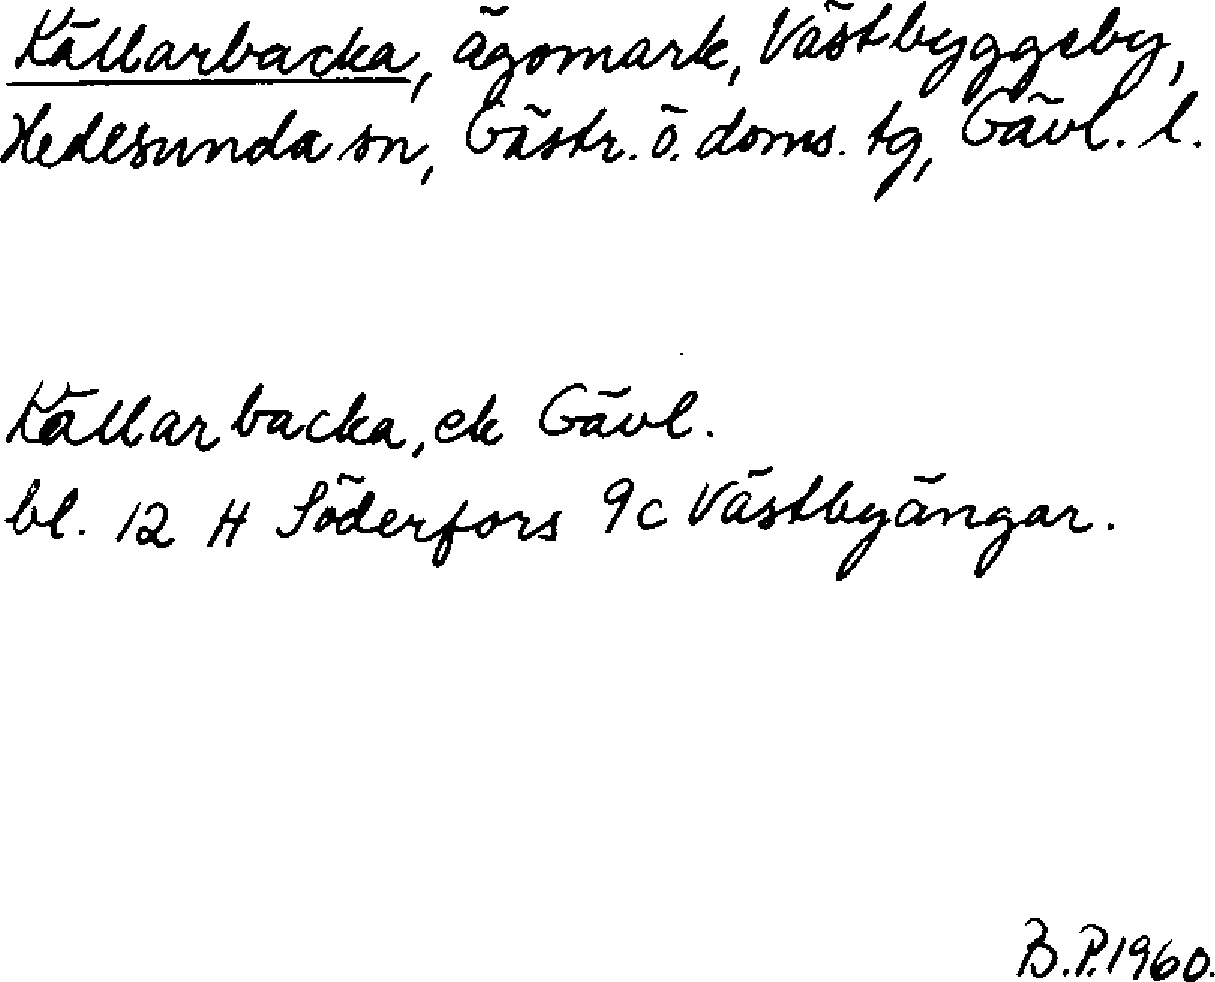 Källarbacka, ägomark, Västbyggeby,
Hedesunda sn, Gästr. ö. doms. tg, Gävl. l.
Källarbacka, ek Gävl.
bl. 12 H Söderfors 9c Västbyängar.
B.P.1960.